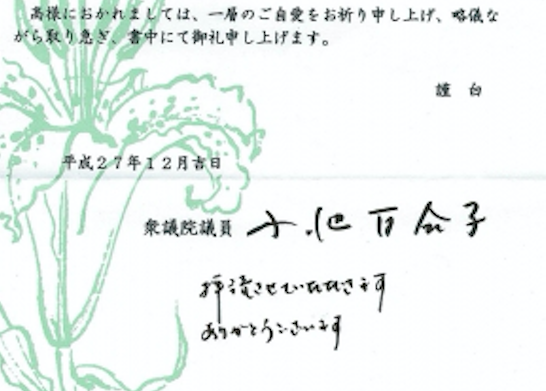 高様におかれましては、一層のご自愛をお祈り申し上げ、略儀な
がら取り急ぎ、書中にて御礼申し上げます。
謹 白
平成２７年１２月吉日
衆議院議員 小池百合子
拝読させていただきます
ありがとうございます